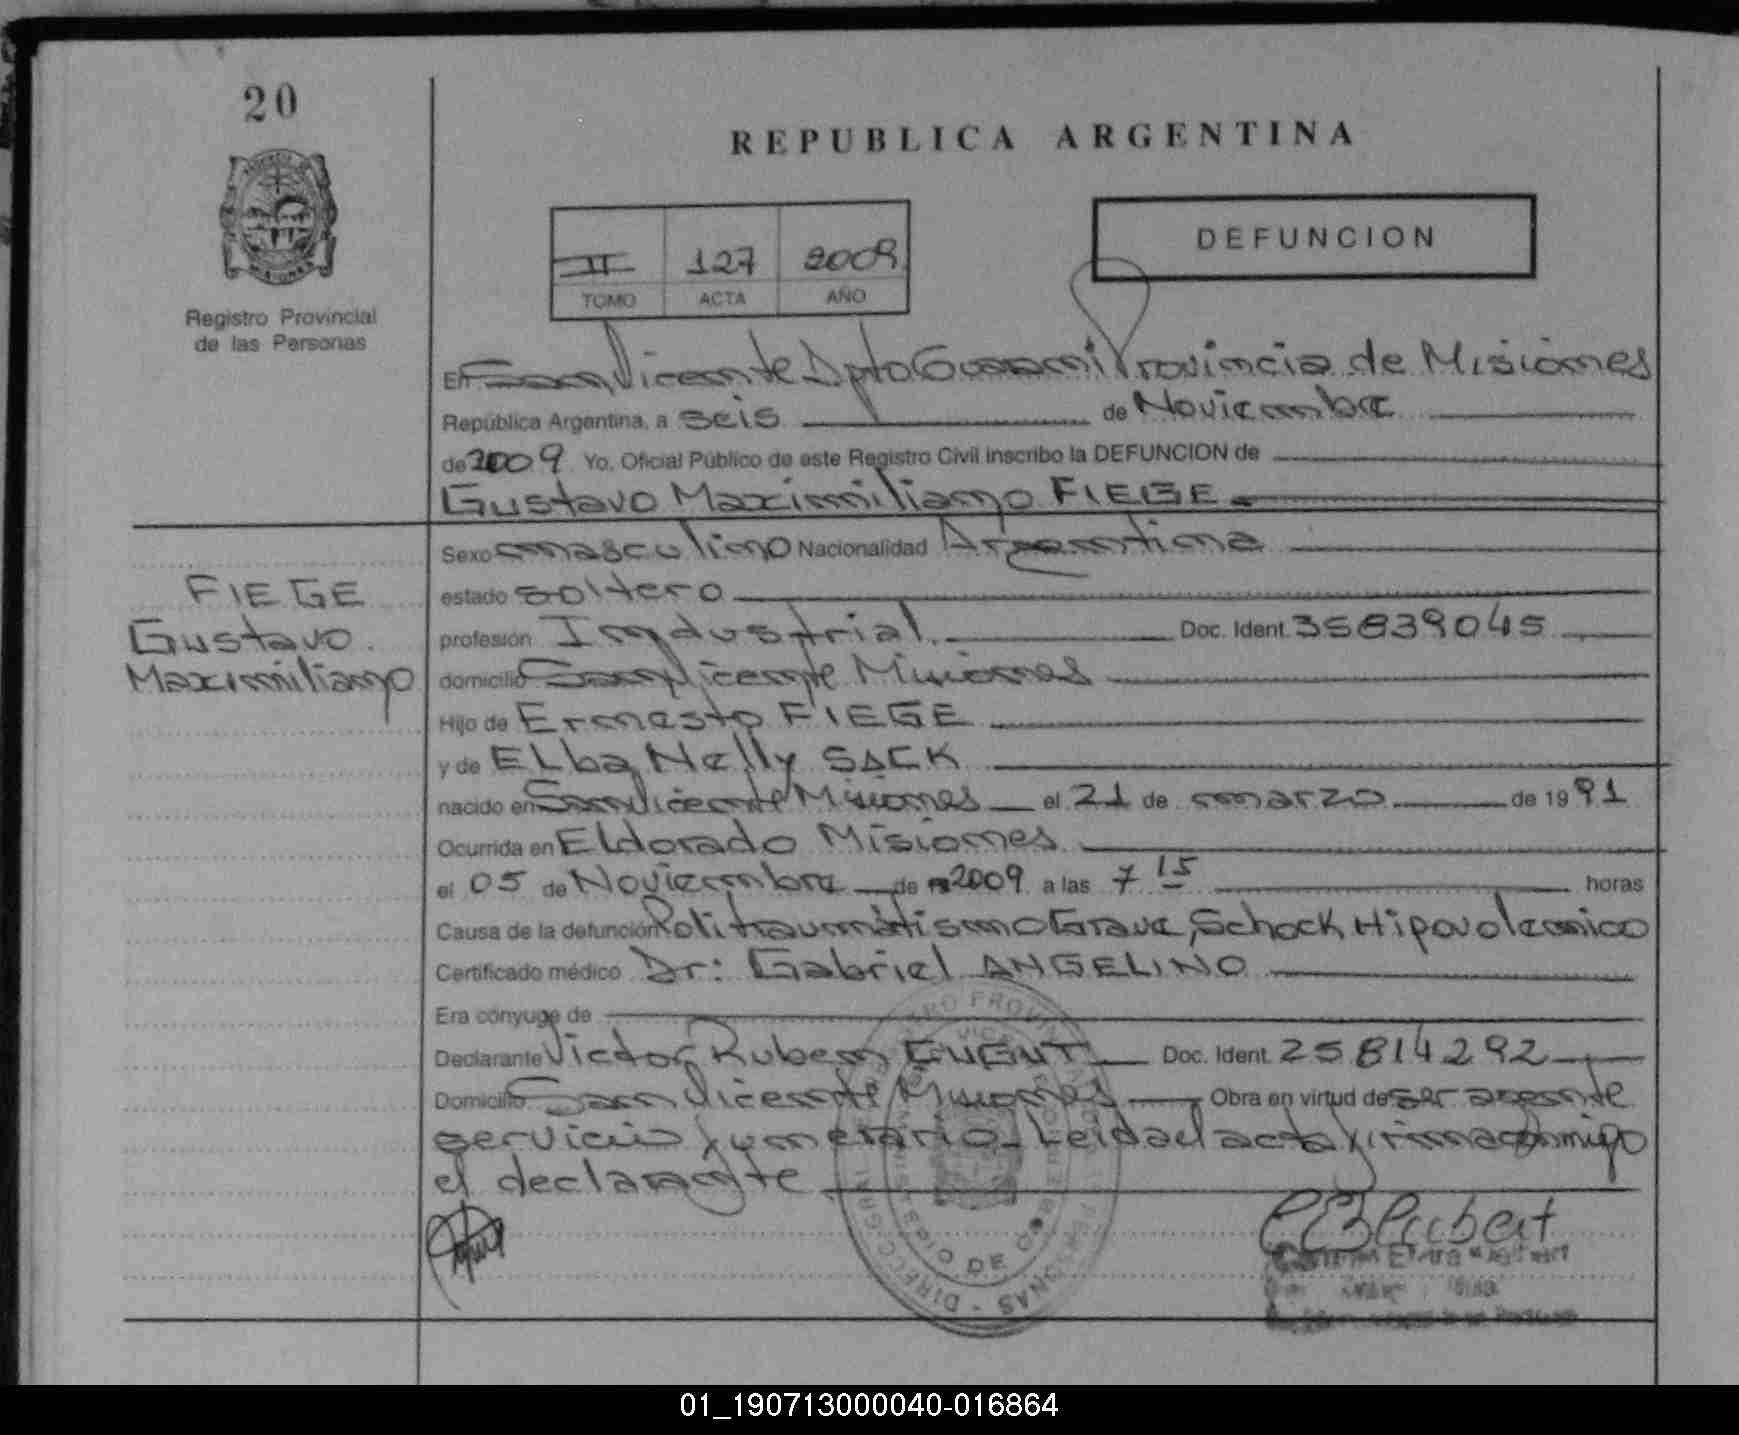 20
REPUBLICA ARGENTINA
DEFUNCION
II 127 2009
TOMO ACTA AÑO
Registro Provincial
de las Personas
En San Vicente Dpto Guarani Provincia de Misiones
República Argentina, a seis de Noviembre
de 2009 Yo, Oficial Público de este Registro Civil inscribo la DEFUNCION de
Gustavo Maximiliano FIEGE
Sexo masculino Nacionalidad Argentina
FIEGE
Gustavo
Maximiliano
estado soltero
profesión Industrial Doc. Ident. 35839045
domicilio San Vicente Misiones
Hijo de Ernesto FIEGE
y de Elba Nelly SACK
nacido en San Vicente Misiones el 21 de marzo de 1991
Ocurrida en Eldorado Misiones
el 05 de Noviembre de 2009 a las 7 15 horas
Causa de la defunción Politraumatismo Grave, Schock Hipovolemico
Certificado médico Dr: Gabriel ANGELINO
Era cónyuge de
Declarante Victor Ruben Doc. Ident. 25814292
Domicilio San Vicente Misiones Obra en virtud de ser agente
servicio funerario. Leida el acta firma conmigo
el declarante
01_190713000040-016864